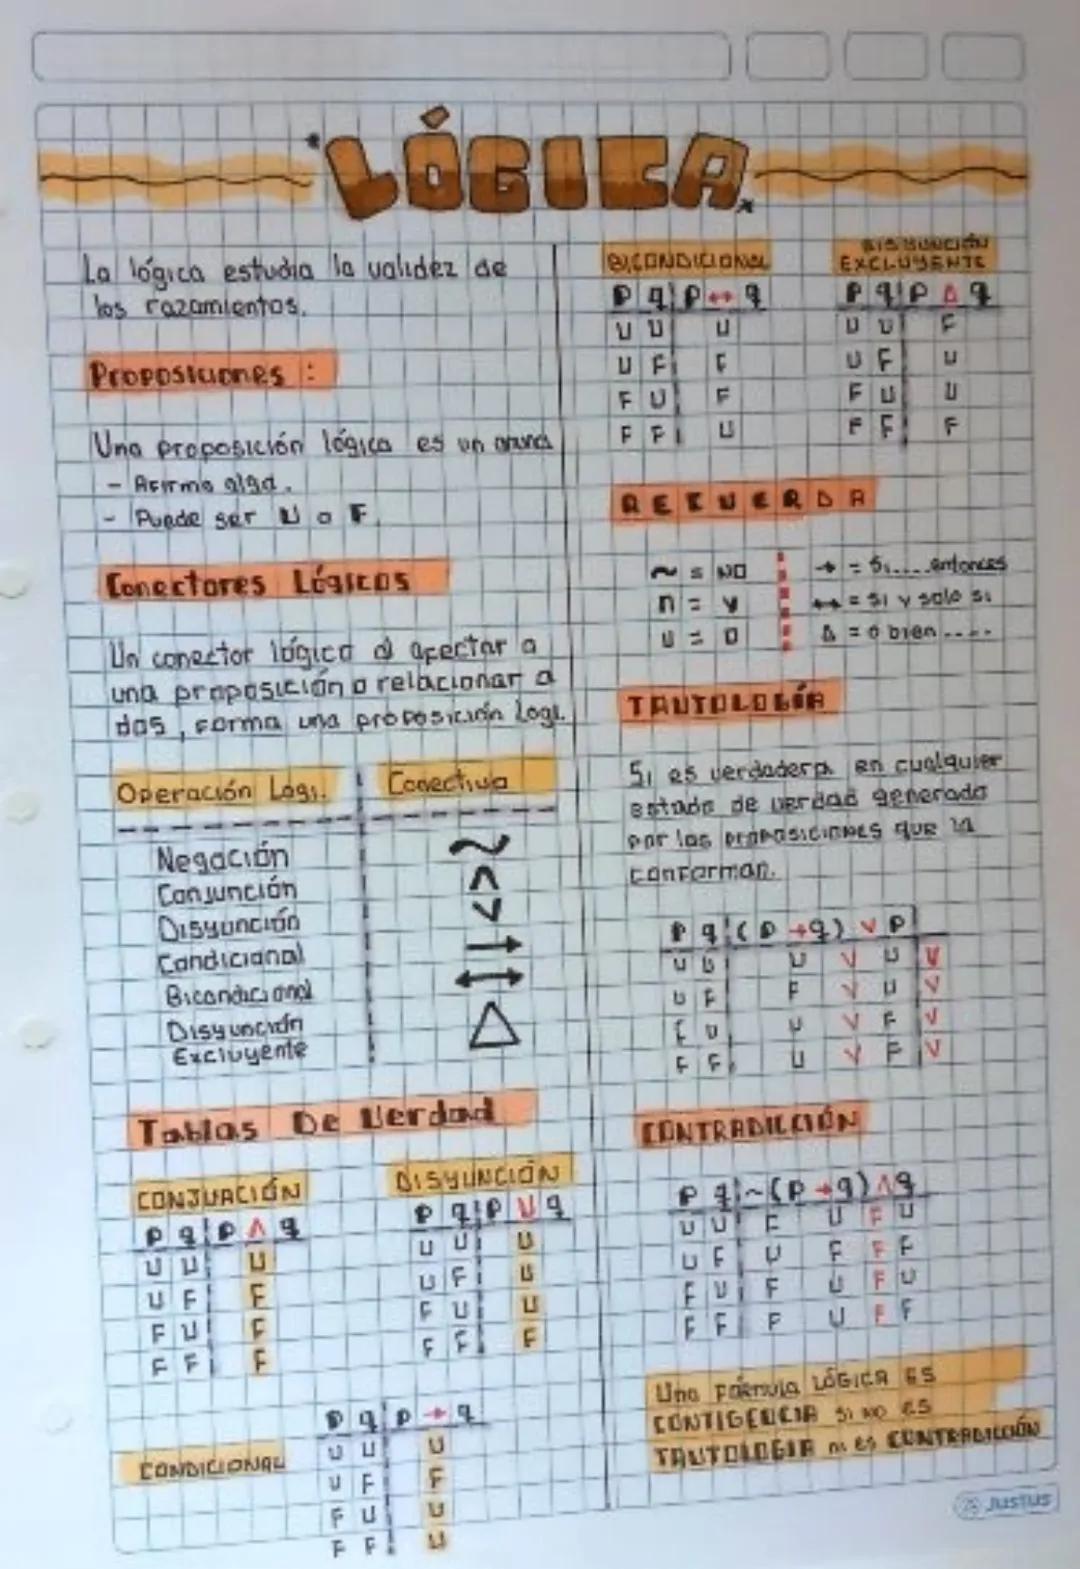 LÓGICA
La lógica estudia la validez de
los razamientos.
Proposiciones :
Una proposición lógica es un
- Afirma algo.
- Puede ser V o F.
Conectores Lógicos
Un conector lógico al afectar a
una proposición o relacionar a
dos, forma una proposición Logi.
Operación Lógi. Conectivo
Negación ~
Conjunción ∧
Disyunción ∨
Condicional →
Bicondicional ↔
Disyunción
Excluyente △
Tablas De Verdad
CONJUACIÓN
p q p ∧ q
V V V
V F F
F V F
F F F
DISYUNCIÓN
p q p V q
V V V
V F V
F V V
F F F
CONDICIONAL
p q p → q
V V V
V F F
F V V
F F V
BICONDICIONAL
p q p ↔ q
V V V
V F F
F V F
F F V
DISYUNCIÓN
EXCLUYENTE
p q p △ q
V V F
V F V
F V V
F F F
RECUERDA
~ = NO
∩ = y
U = O
→ = Si....entonces
↔ = Si y solo si
△ = o bien ....
TAUTOLOGÍA
Si es verdadera en cualquier
estado de verdad generado
por las proposiciones que la
conforman.
p q (p → q) V p
V V V V V V
V F F V V V
F V V V F V
F F V V F V
CONTRADICCIÓN
p q ~(p → q) ∧ q
V V F V F V
V F V F F F
F V F V F V
F F F V F F
Una Fórmula LÓGICA ES
CONTIGENCIA SI NO ES
TAUTOLOGIA ni es CONTRADICCIÓN
JUSTUS